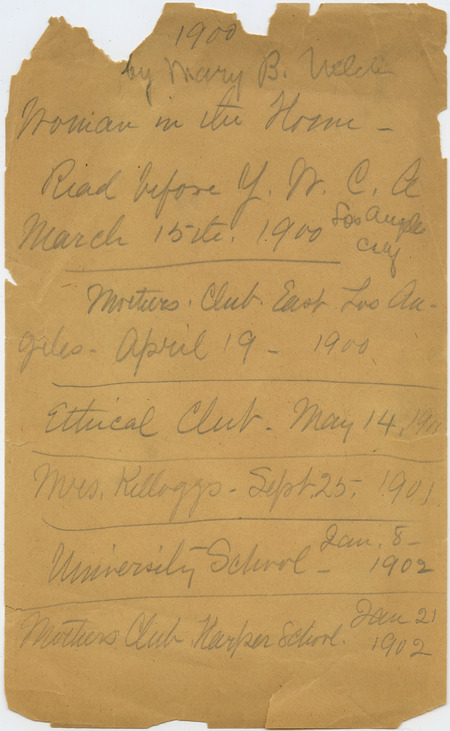 1900
by Mary B. Welch
Woman in the Home -
Read before Y. W. C. A
March 15th. 1900 Los Angeles
City
Mothers. Club. East Los An-
geles - April 19 - 1900
Ethical Club - May 14, 190
Mrs. Kelloggs - Sept. 25, 1901
University School - Jan. 8 -
1902
Mothers Club Harper School. Jan 21
1902